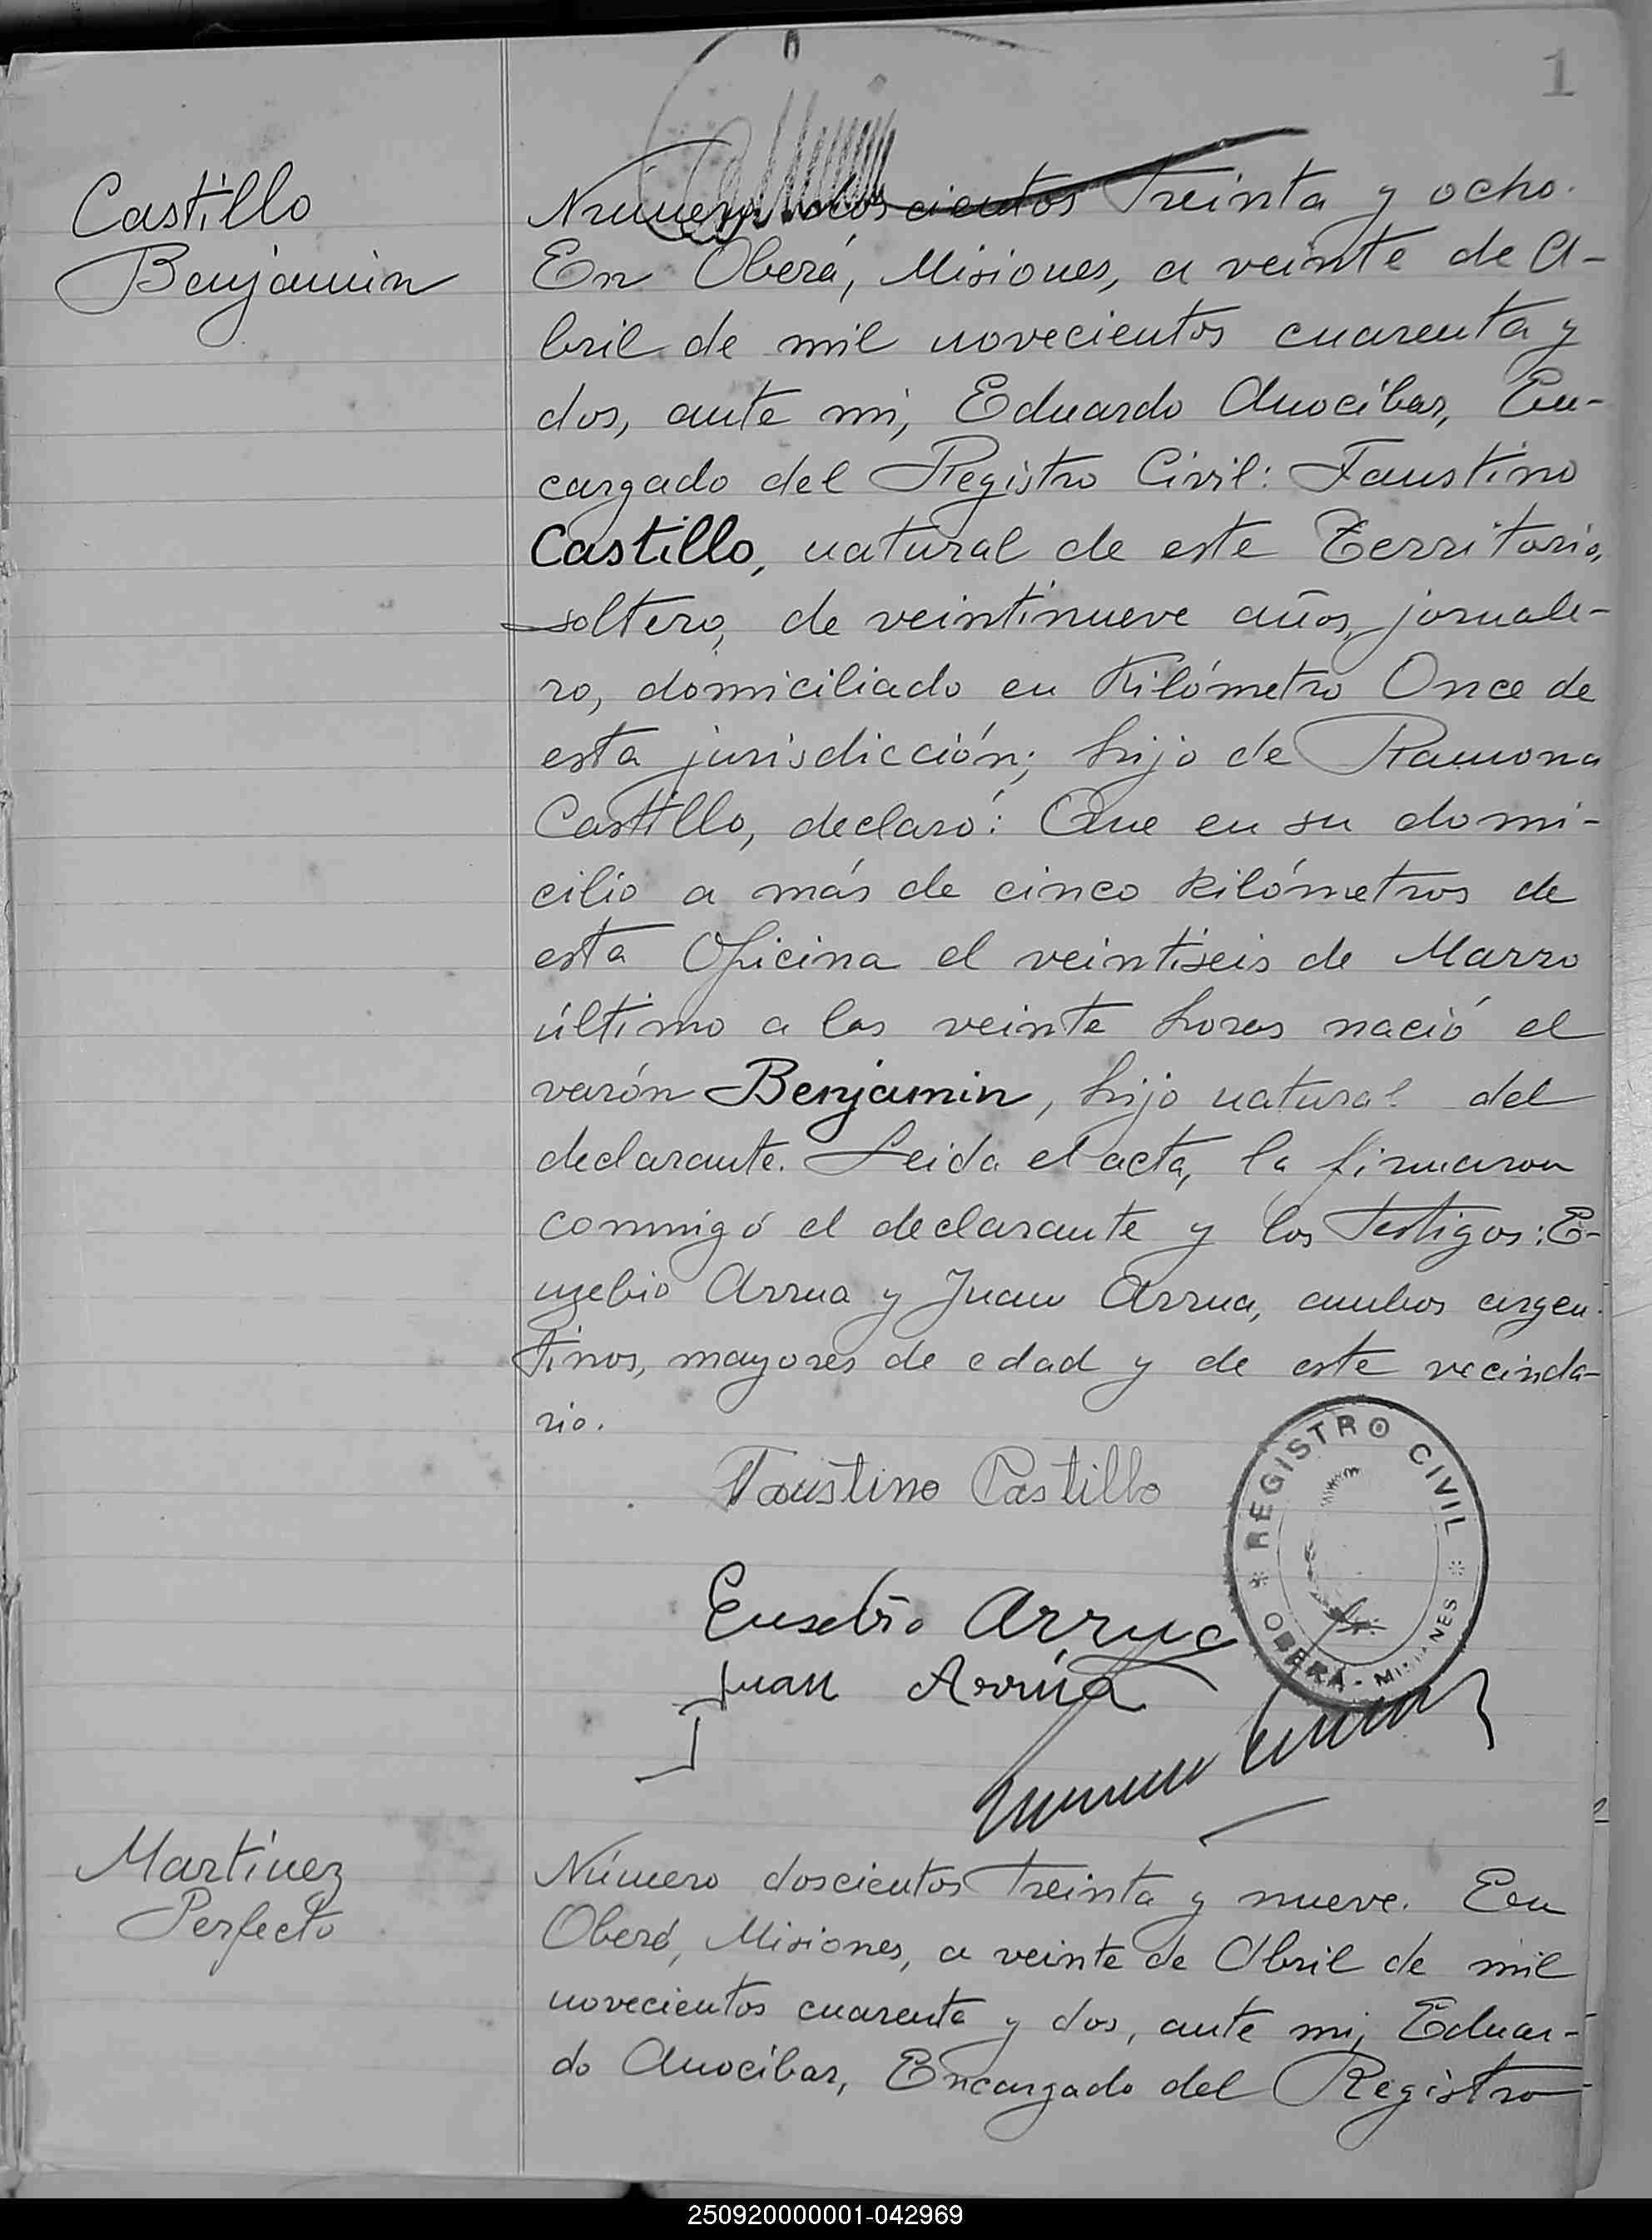 1
Castillo
Benjamin
Número doscientos Treinta y ocho.
En Oberá, Misiones, a veinte de A-
bril de mil novecientos cuarenta y
dos, ante mi, Eduardo Anocíbar, En-
cargado del Registro Civil: Faustino
Castillo, natural de este Territorio,
soltero, de veintinueve años, jornale-
ro, domiciliado en Kilómetro Once de
esta jurisdicción; hijo de Ramona
Castillo, declaró: Que en su domi-
cilio a más de cinco kilómetros de
esta Oficina el veintiseis de Marzo
último a las veinte horas nació el
varón Benjamin, hijo natural del
declarante. Leida el acta, la firmaron
conmigo el declarante y los Testigos: E-
uzebio Arrua y Juan Arrua, ambos argen-
tinos, mayores de edad y de este vecinda-
rio.
Faustino Castillo
Eusebio Arrua
Juan Arrúa
REGISTRO CIVIL
OBERÁ - MISIONES
Martinez
Perfecto
Número doscientos Treinta y nueve. En
Oberá, Misiones, a veinte de Abril de mil
novecientos cuarenta y dos, ante mi, Eduar-
do Anocíbar, Encargado del Registro
250920000001-042969